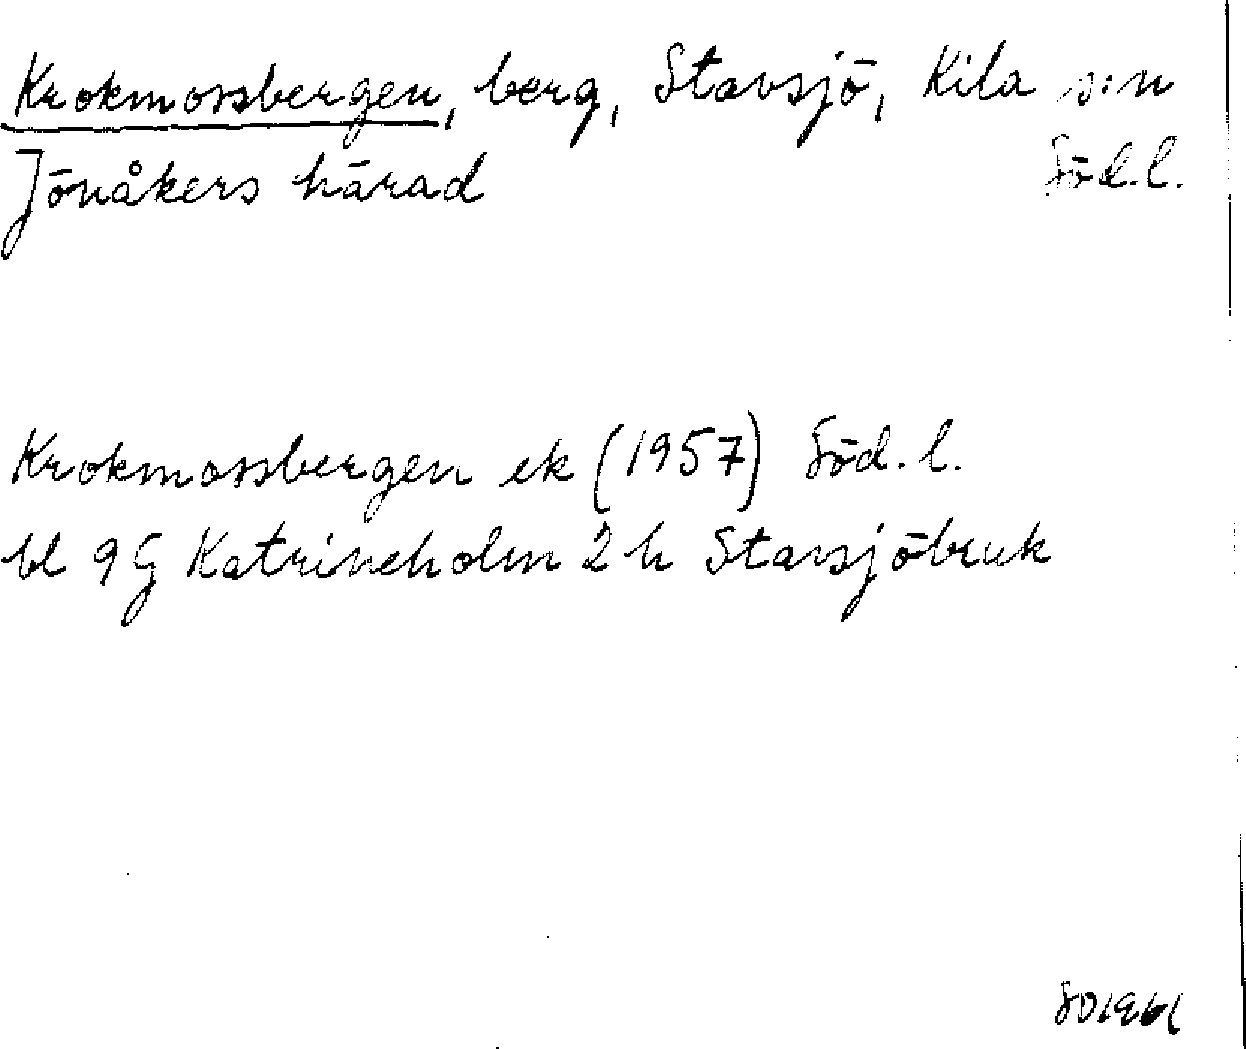 Krokmossbergen, berg, Stavsjö, Kila sn
Jönåkers härad Söd. l.
Krokmossbergen ek (1957) Söd. l.
bl 9G Katrineholm 2 h Stavsjöbruk